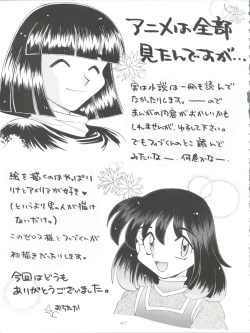 アニメは全部
見たんですが…
実は小説は一冊も読んで
なかったりします。――ので
まんがの内容がおかしいかも
しれませんが、ゆるして下さい。
でもフィブくんのとこ読んで
みたいなー。何巻かなー。
絵を描くのはやっぱり
リナとアメリアが好き♥
(というより男の人が描け
ないだけ。)
このゼロス様とフィブくんが
初描きだったりします。
今回はどうも
ありがとうございました。